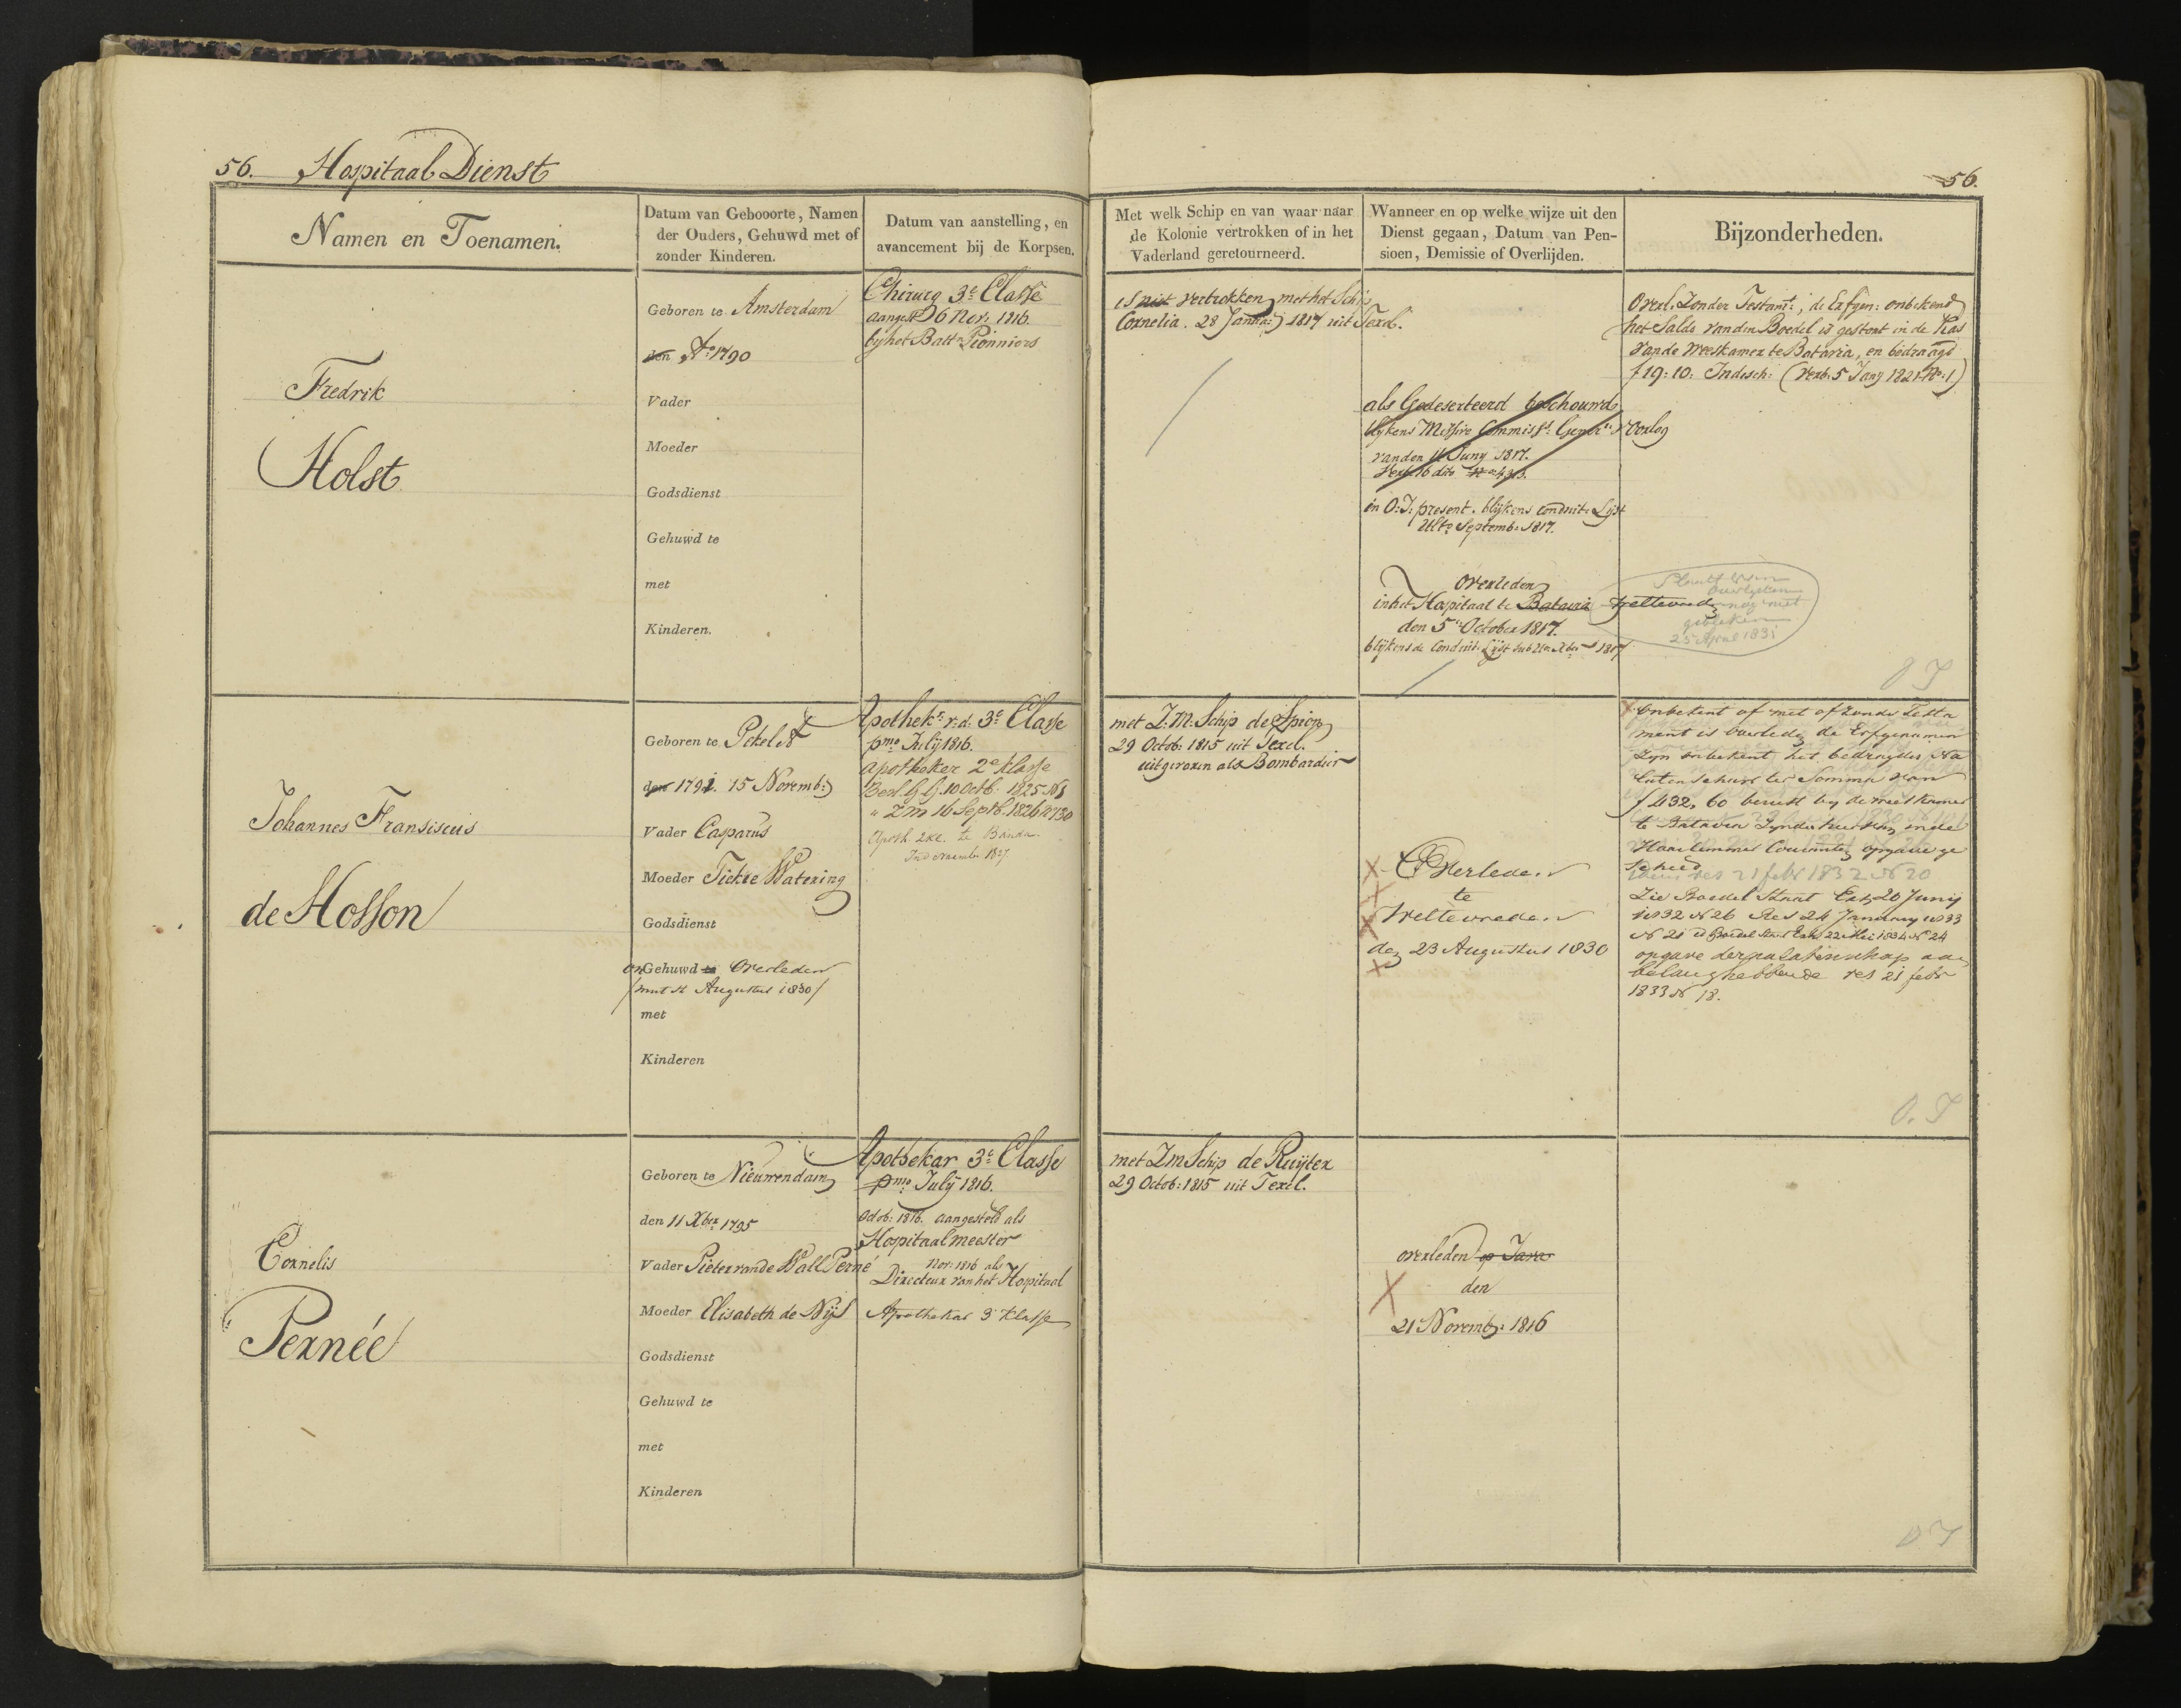 56. Hospitaal Dienst
56.
Namen en Toenamen.
Datum van Gebooorte, Namen
der Ouders, Gehuwd met of
zonder Kinderen.
Datum van aanstelling, en
avancement bij de Korpsen.
Met welk Schip en van waar naar
de Kolonie vertrokken of in het
Vaderland geretourneerd.
Wanneer en op welke wijze uit den
Dienst gegaan, Datum van Pen-
sioen, Demissie of Overlijden.
Bijzonderheden.
Fredrik
Holst
Geboren te Amsterdam
den Ao. 1790
Vader
Moeder
Godsdienst
Gehuwd te
met
Kinderen.
Chirurg 3e Classe
aangest 6 Nov: 1816.
bij het Battn Pionniers
is niet vertrokken met het Schip
Cornelia. 28 Januarij 1817 uit Texel.
als Gedeserteerd beschouwd
blijkens Missive Commisss: Gener: v. Oorlog
van den 11 Juny 1817.
Verb. 16 dito
in O: I: present. blijkens conduit: Lijst
Ulto Septemb: 1817.
Overleden
in het Hospitaal te Batavia Weltevreden
den 5en October 1817.
blijkens de Conduit: Lijst sub Ulto Xber 1817
Overl. Zonder Testamt:, de Erfgen: onbekend
het Saldo van den Boedel is gestort in de Kas
van de Weeskamer te Batavia, en bedraagt
f 19: 10: Indisch: (Verb: 5 Jany 1821 No: 1)
overlijden
nog niet
gebleken
25 April 1831
O I
Johannes Fransiscus
de Hosson
Geboren te Pekel A
den 1791. 15 Novemb:
Vader Casparus
Moeder Tiekie Watering
Godsdienst
onGehuwd te Overleden
/mut st Augustus 1830/
met
Kinderen
Apothekr v: d: 3e Classe
pmo July 1816.
Apotheker 2e Klasse
Besl. G G. 10 Octb: 1825 No 8
" Z M 16 Septb. 1826 No 130
Apoth. 2 kl. te Banda.
Ind November 1827.
met Z: M: Schip de Spion
29 Octob: 1815 uit Texel.
uitgevaren als Bombardier
Overleden
te
Weltevreden
den 23 Augustus 1830
Onbekent of met of zonder Testa
ment is overleden de Erfgenamen
Zyn onbekent het bedragder Na
latenschap ter Somma van
f 432, 60 berust by de weeskamer
te Batavia Zynde hiervan in de
Haarlemmer Courante opgave ge
schied
res 21 febr 1832 No 20
Zie Boedel Staat Exh 20 Juny
1832 No 26 Res 24 January 1833
No 21 en Boedel Staat Exh 22 Mei 1834 No 24
opgave der nalatenschap aan
belanghebbende res 21 febr
1833 No 18.
O. I
Cornelis
Pernée
Geboren te Nieuwendam
den 11 Xber 1795
Vader Pieter van de Wall Perné
Moeder Elisabeth de Nijs
Godsdienst
Gehuwd te
met
Kinderen
Apothekar 3e Classe
pmo July 1816.
Octob: 1816. aangesteld als
Hospitaalmeester
Nov: 1816 als
Directeur van het Hospitaal
Apothekar 3e Klasse
met ZM Schip de Ruijter
29 Octob: 1815 uit Texel.
overleden op Java
den
21 Novemb: 1816
O. I